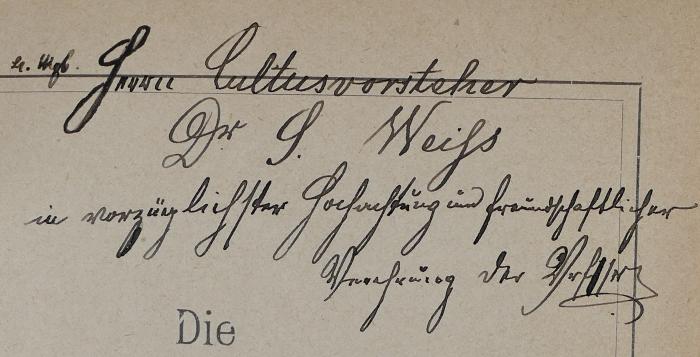 Herrn Cultusvorsteher
Dr S. Weiss
in vorzüglichster Hochachtung und freundschaftlicher
Verehrung der Verfasser
Die